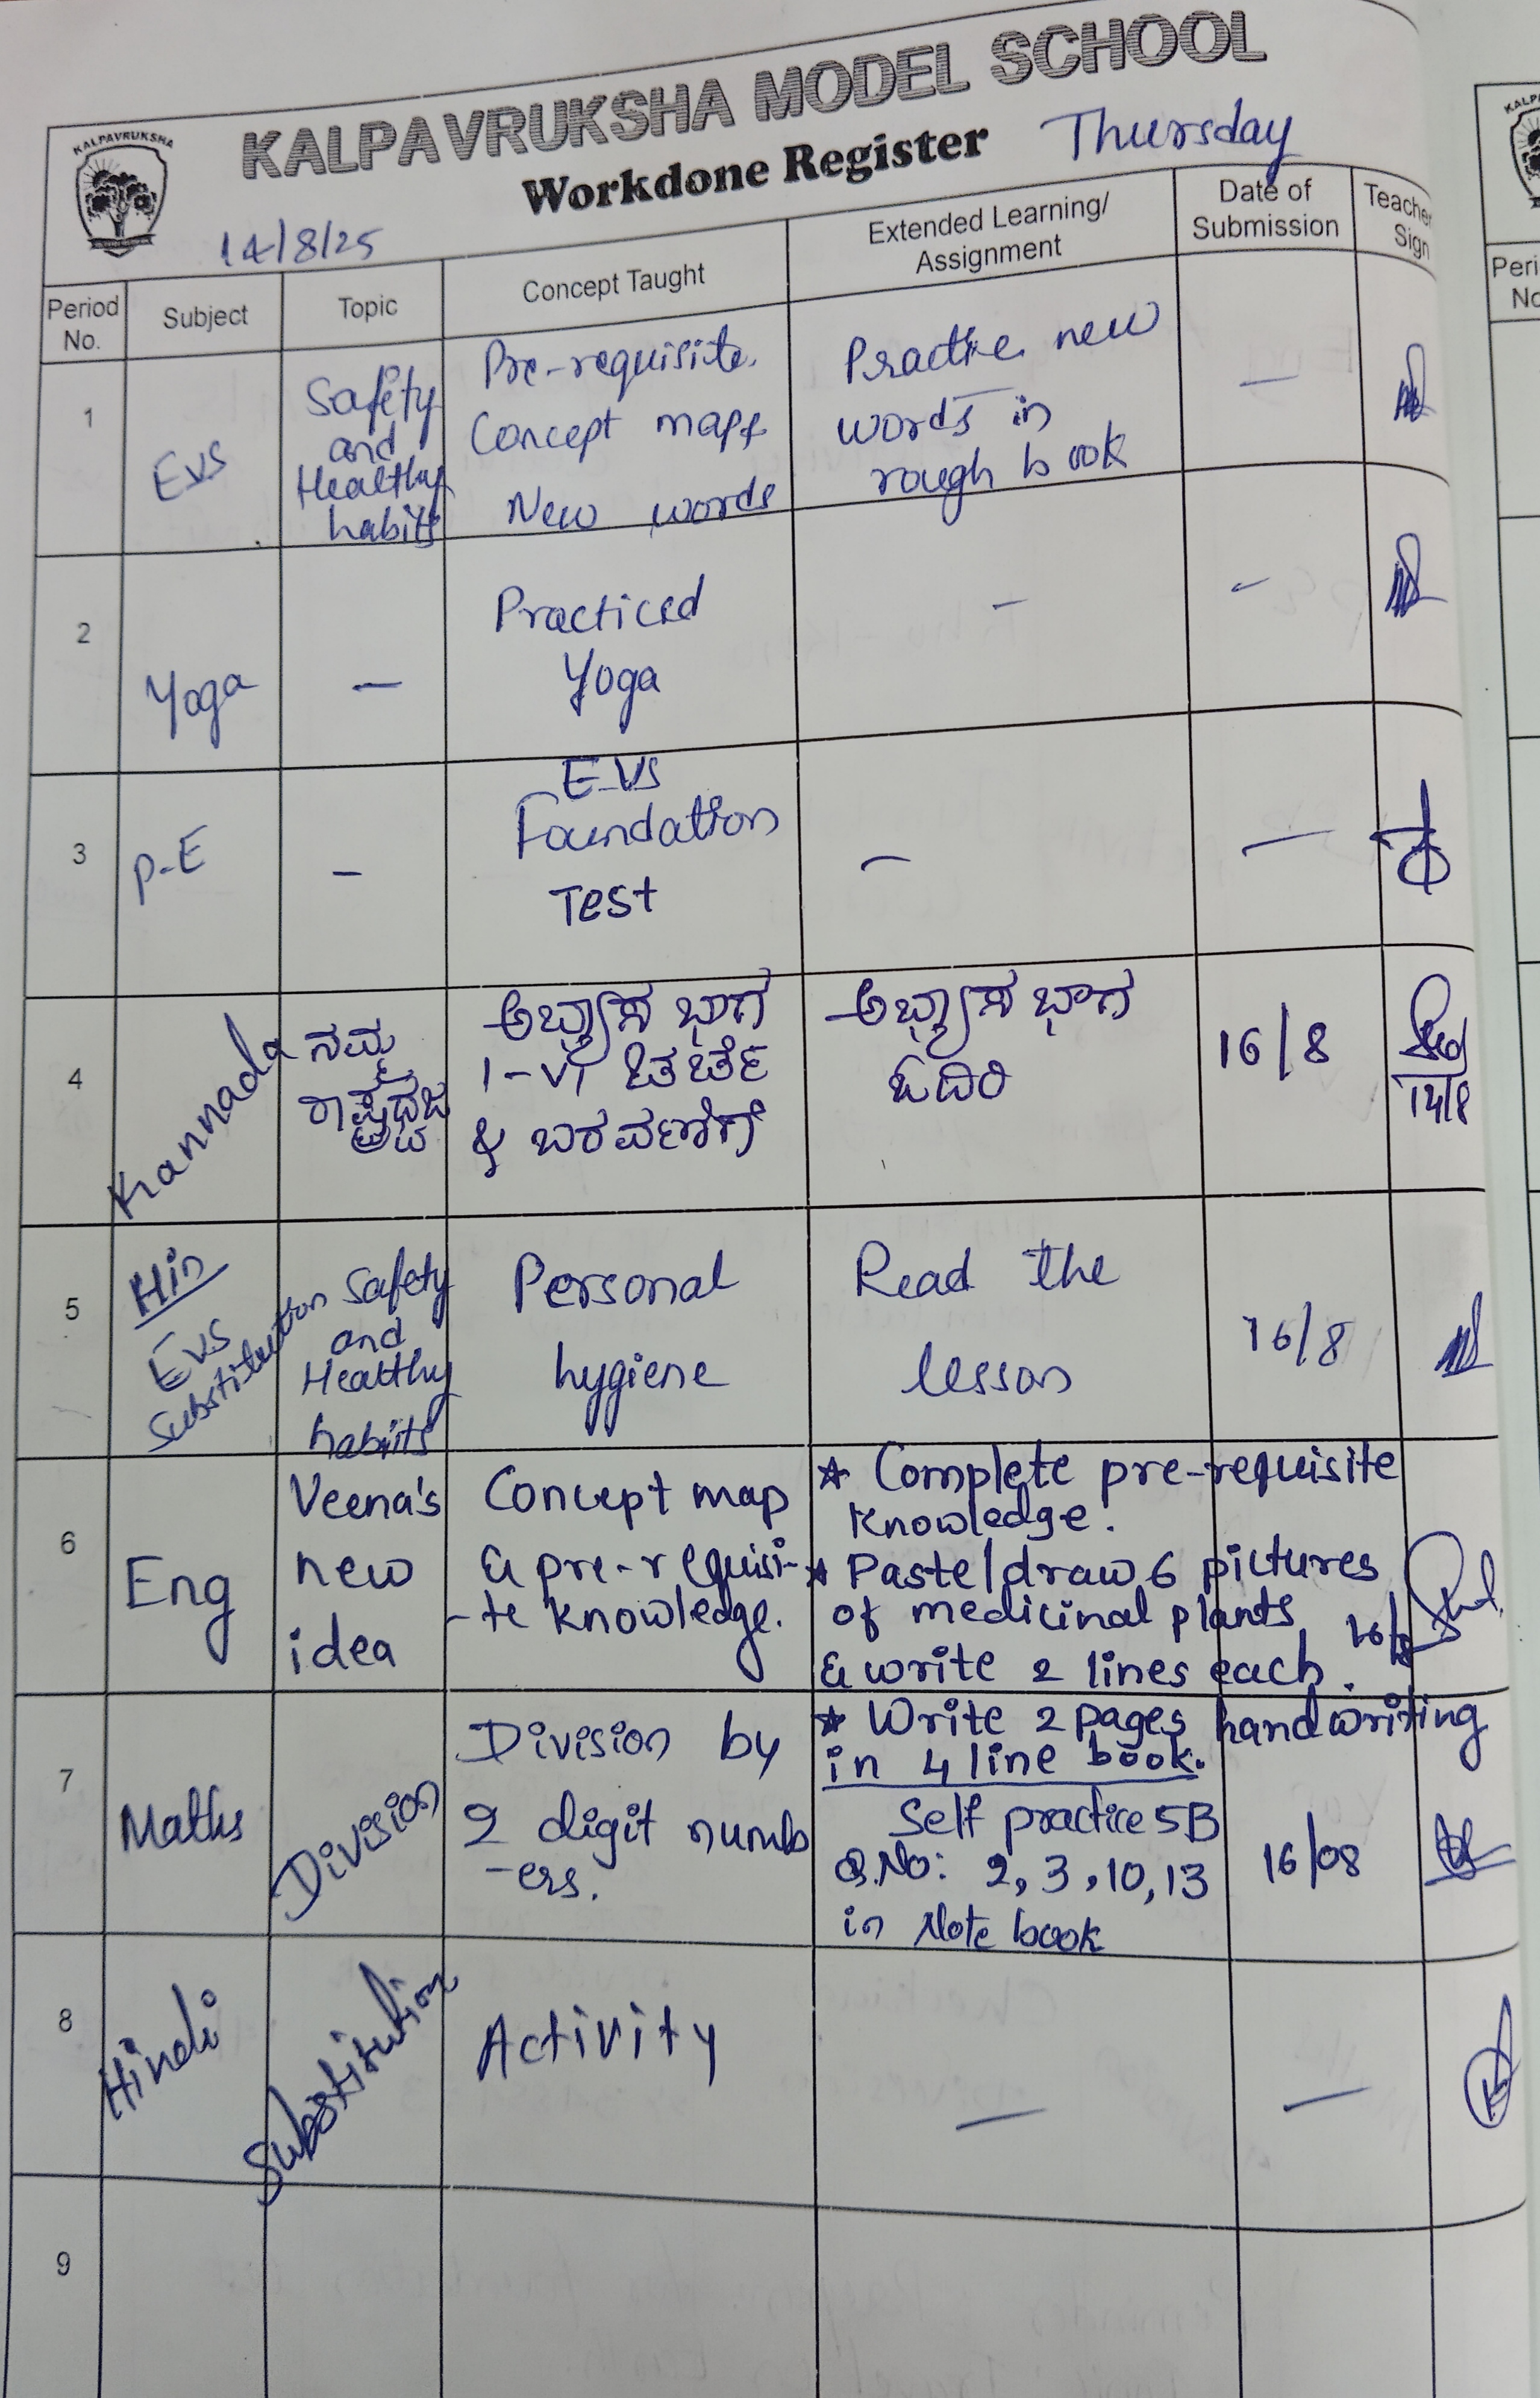 KALPAVRUKSHA MODEL SCHOOL
KALPAVRUKSHA
Workdone Register
Thursday
14/8/25
Period No.
Subject
Topic
Concept Taught
Extended Learning/
Assignment
Date of
Submission
Teacher
Sign
1
EVS
Safety
and
Healthy
habits
Pre-requisite
Concept map &
New words
Practice new
words in
rough book
—
2
Yoga
—
Practiced
Yoga
—
—
3
P-E
-
EVS
Foundation
Test
—
—
4
Kannada
ನಮ್ಮ
ರಾಷ್ಟ್ರಧ್ವಜ
ಅಭ್ಯಾಸ ಭಾಗ
1-VI ಚರ್ಚೆ
& ಬರವಣಿಗೆ
ಅಭ್ಯಾಸ ಭಾಗ
ಓದಿರಿ
16/8
14/8
5
Hin
EVS
Substitution
Safety
and
Healthy
habits
Personal
hygiene
Read the
lesson
16/8
6
Eng
Veena's
new
idea
Concept map
& pre-requisi-
-te knowledge.
* Complete pre-requisite
knowledge.
* Paste/draw 6 pictures
of medicinal plants
& write 2 lines each.
16/8
* Write 2 pages handwriting
in 4 line book.
7
Maths
Division
Division by
2 digit numb
-ers.
Self practice 5B
Q.No: 2, 3, 10, 13
in Note book
16/08
8
Hindi
Substitution
Activity
—
—
9
Peri
No